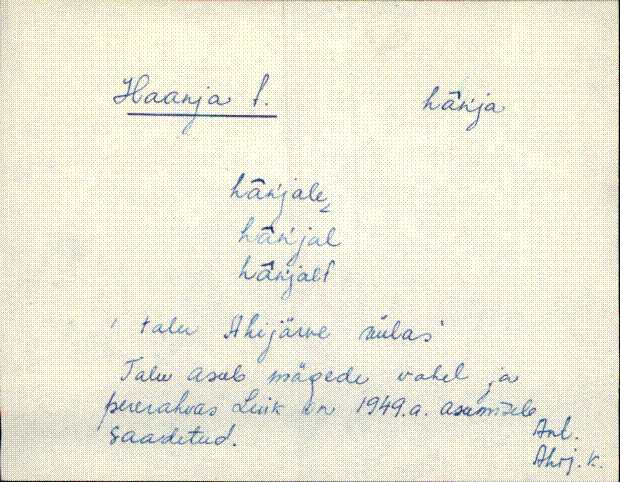 Haanja t. hâńja
hâńjale
hâńjal
hâńjalt
' talu Ahijärve külas'
Talu asub mägede vahel ja
pererahvas Liik on 1949.a. asumisele
saadetud.
Ant.
Ahij. k.